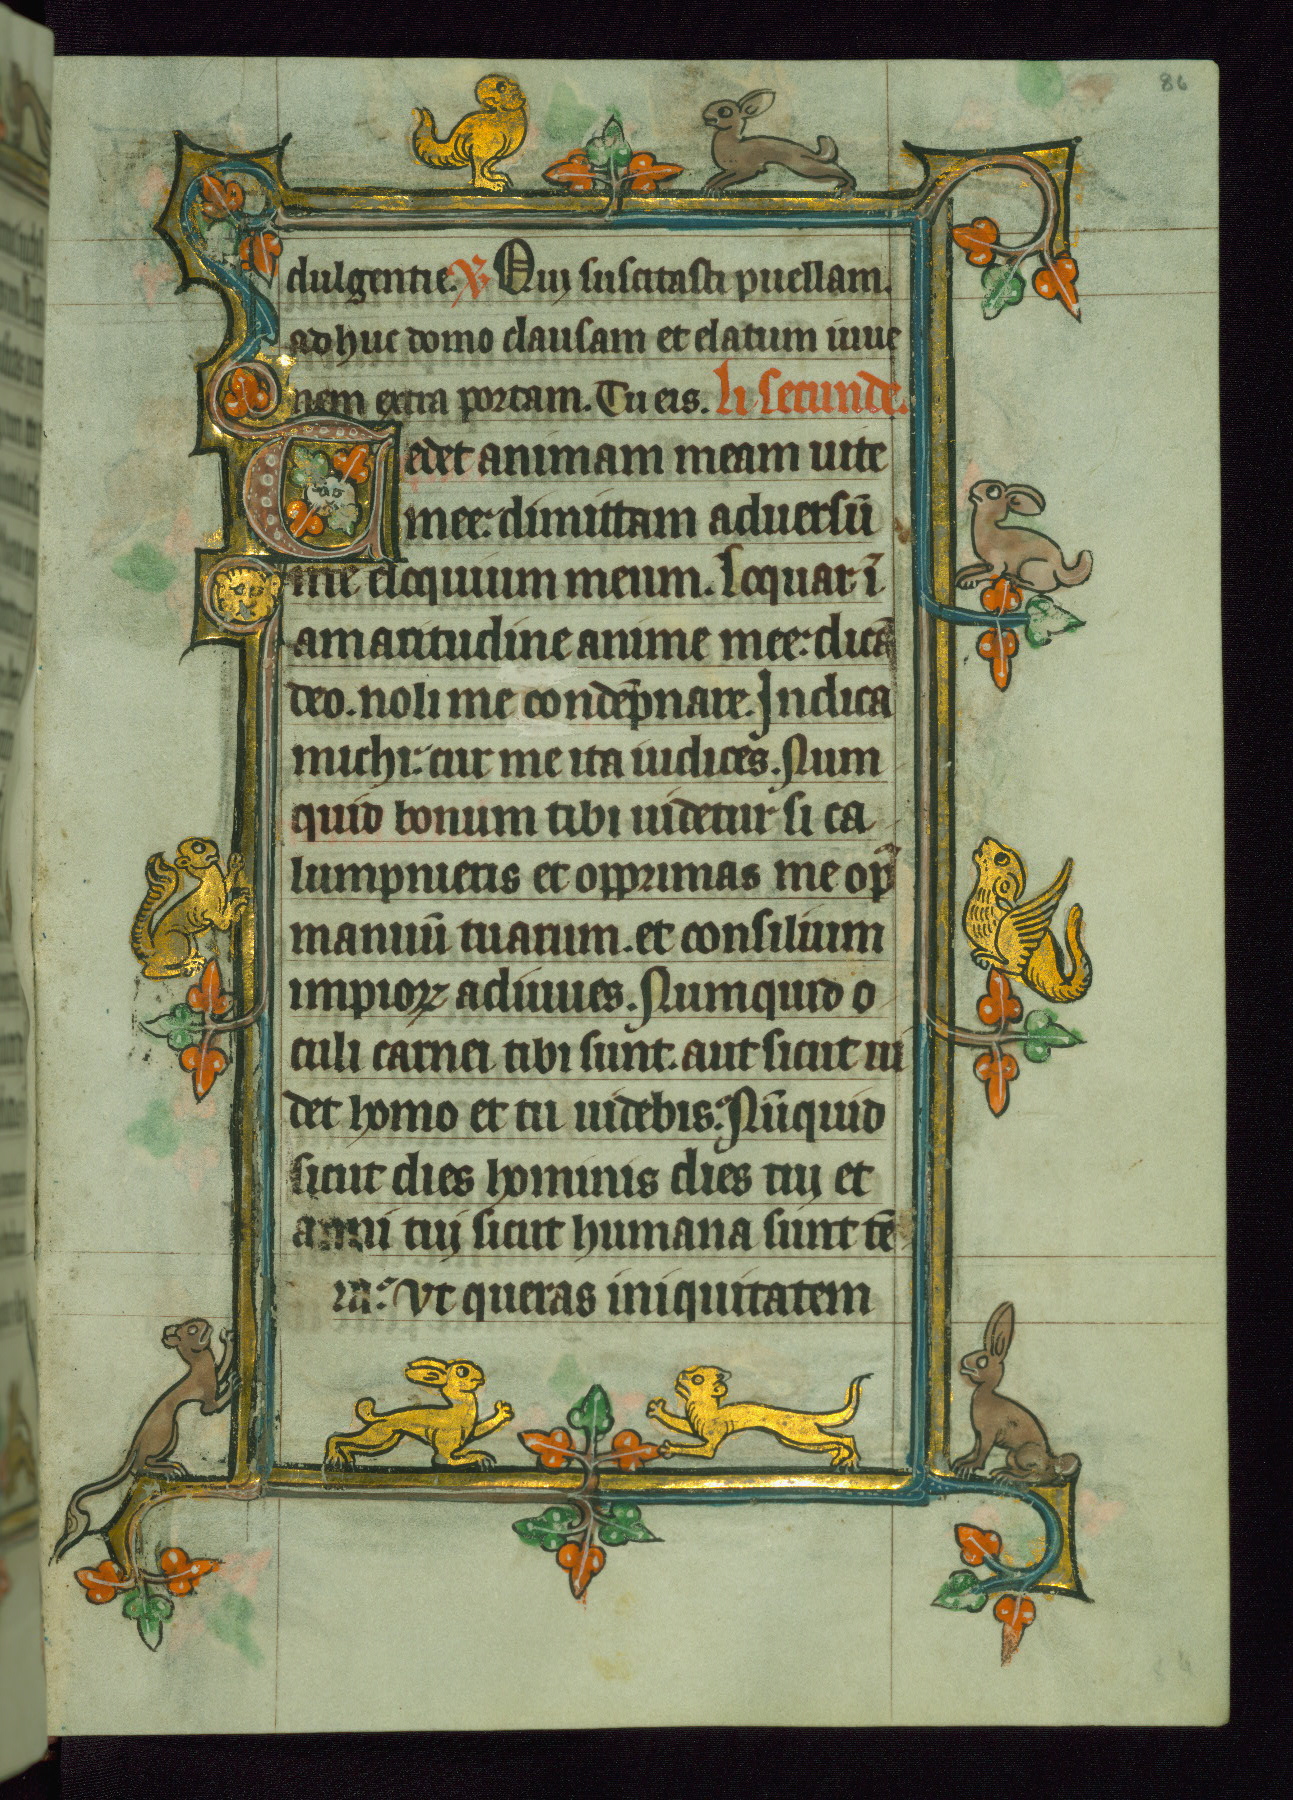 86
dulgentie. V Qui suscitasti puellam.
adhuc domo clausam et elatum iuue
nem extra portam. Tu eis. li secunde.
Tedet animam meam uite
mee: dimittam aduersū
me eloquium meum. Loquar ī
amaritudine anime mee: dicā
deo. noli me condēpnare. Indica
michi: cur me ita iudices. Num
quid bonum tibi uidetur si ca
lumpnieris et opprimas me op̄
manuū tuarum. et consilium
impioꝝ adiuues. Numquid o
culi carnei tibi sunt. aut sicut ui
det homo et tu uidebis: Nūquid
sicut dies hominis dies tuj et
anni tuj sicut humana sunt tē
ra: Vt queras iniquitatem